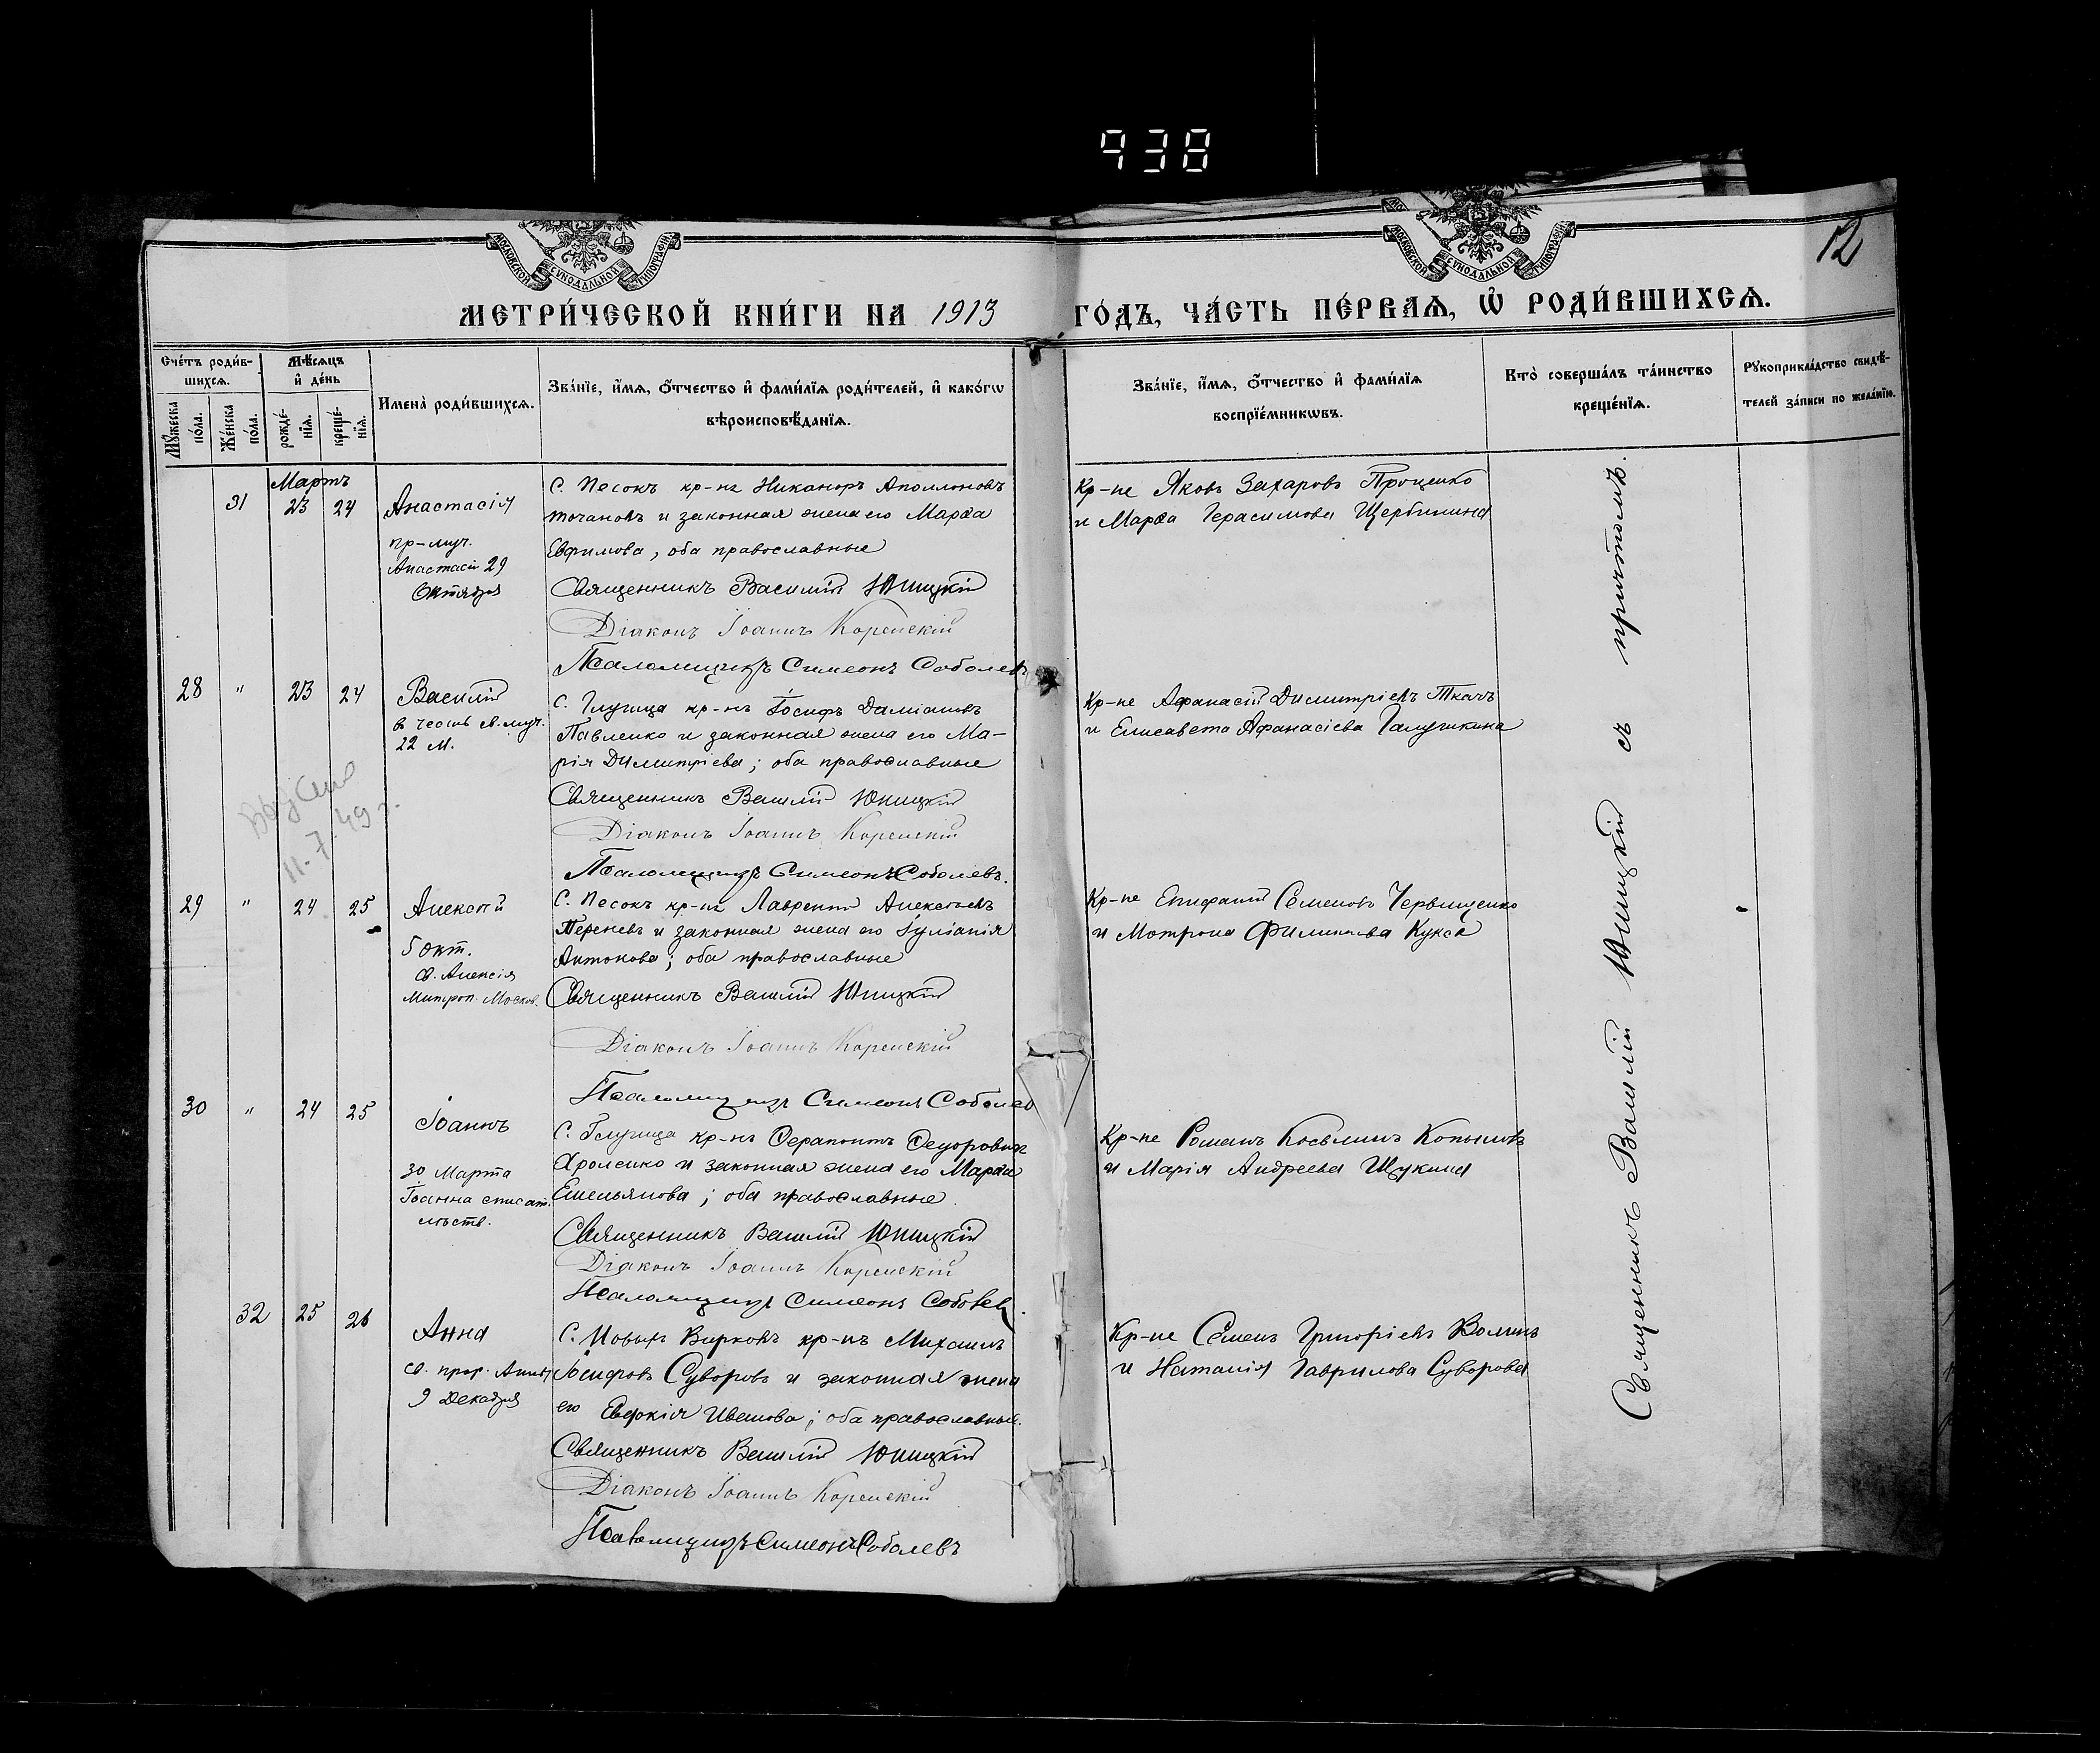 938
МОСКОВСКОЙ СѴНОДАЛЬНОЙ ТИПОГРАФІИ
МОСКОВСКОЙ СѴНОДАЛЬНОЙ ТИПОГРАФІИ
12
МЕТРИ́ЧЕСКОЙ КНИ́ГИ НА 1913 ГО́ДЪ, ЧА́СТЬ ПЕ́РВАѦ, Ѡ҆ РОДИ́ВШИХСѦ.
Сче́тъ роди́в-
шихсѧ.
Мꙋ́жеска по́ла.
Же́нска по́ла.
Мѣ́сѧцъ
и҆ де́нь
рожде́-
нїѧ.
креще́-
нїѧ.
Имена̀ роди́вшихсѧ.
Зва́нїе, и҆́мѧ, ѻ҆́тчество и҆ фами́лїѧ роди́телей, и҆ како́гѡ
вѣроисповѣ́данїѧ.
Зва́нїе, и҆́мѧ, ѻ҆́тчество и҆ фами́лїѧ
воспрїе́мникѡвъ.
Кто̀ соверша́лъ та́инство
креще́нїѧ.
Рꙋкоприкла́дство свидѣ́-
телей за́писи по жела́нїю.
Мартъ
31 23 24 Анастасія
пр-муч.
Анастасіи 29
Октября
С. Песокъ кр-нъ Никаноръ Аполлоновъ
Точановъ и законная жена его Марѳа
Евфимова, оба православные
Священникъ Василій Юницкій
Діаконъ Іоаннъ Коренскій
Псаломщикъ Симеонъ Соболевъ
Кр-не Яковъ Захаровъ Проценко
и Марѳа Герасимова Щербинина
28 " 23 24 Василій
в честь св. муч.
22 М.
С. Глушца кр-нъ Іосифъ Даміановъ
Павленко и законная жена его Ма-
рія Димитріева; оба православные
Священникъ Василій Юницкій
Діаконъ Іоаннъ Коренскій
Псаломщикъ Симеонъ Соболевъ.
Кр-не Афанасій Димитріевъ Ткачъ
и Елисавета Афанасіева Галушкина
11-7.49 г.
29 " 24 25 Алексій
5 окт.
св. Алексія
Митроп. Москов.
С. Песокъ кр-нъ Лаврентій Алексѣевъ
и законная жена его Іуліанія
Антонова; оба православные
Священникъ Василій Юницкій
Діаконъ Іоаннъ Коренскій
Псаломщикъ Симеонъ Соболев
Кр-не Епифаній Семеновъ Червищенко
и Мотрона Филиппова Кукса
30 " 24 25 Іоаннъ
30 Марта
Іоанна списат.
лѣств.
С. кр-нъ Ѳерапонтъ Ѳедоровичъ
и законная жена его Марѳа
Емельянова; оба православные.
Священникъ Василій Юницкій
Діаконъ Іоаннъ Коренскій
Псаломщикъ Симеонъ Соболев.
Кр-не Романъ Косьминъ Копыловъ
и Марія Андреева Щукина
32 25 26 Анна
св. прор. Анны
9 Декабря
С. Новыхъ Вирковъ кр-нъ Михаилъ
Іосифовъ Суворовъ и законная жена
его Евдокія Иванова; оба православные.
Священникъ Василій Юницкій
Діаконъ Іоаннъ Коренскій
Псаломщикъ Симеонъ Соболевъ
Кр-не Семенъ Григоріевъ Волинъ
и Наталія Гаврилова Суворова
Священникъ Василій Юницкій съ причтомъ.